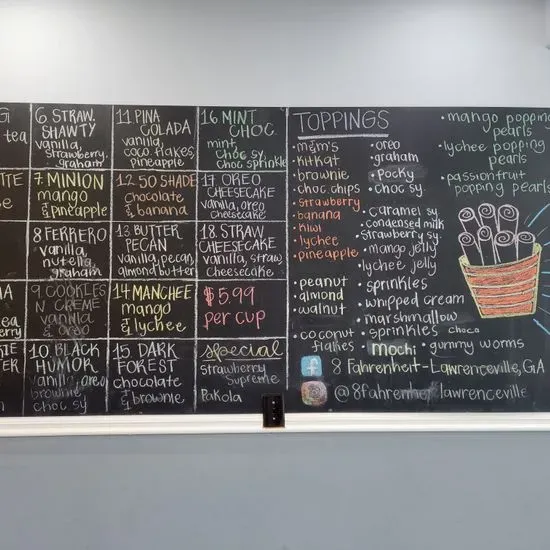 G
tea
6 STRAW.
SHAWTY
vanilla,
strawberry,
graham
11 PINA
COLADA
vanilla,
coco flakes,
pineapple
16 MINT
CHOC.
mint,
choc sy
choc sprinkle
7. MINION
mango
& pineapple
12. 50 SHADE
Chocolate
& banana
17. OREO
CHEESECAKE
vanilla, oreo
cheesecake
8 FERRERO
vanilla
nutella,
graham
13. BUTTER
PECAN
vanilla, pecan,
almond butter
18. STRAW
CHEESECAKE
vanilla, straw,
cheesecake
9 COOKIES
N CREME
vanilla
& oreo
14 MANCHEE
mango
& lychee
$5.99
per cup
10. BLACK
HUMOR
vanilla, oreo
brownie
choc sy
15. DARK
FOREST
chocolate
& brownie
special
Strawberry
Supreme
Pakola
TOPPINGS
• m&m's
• kitkat
• brownie
• choc chips
• strawberry
• banana
• kiwi
• lychee
• pineapple
• peanut
• almond
• walnut
• coconut
flakes
• oreo
• graham
• pocky
• choc sy.
• caramel sy.
• condensed milk
• strawberry sy.
• mango jelly
• lychee jelly
• sprinkles
• whipped cream
• marshmallow
• sprinkles choco
• mochi
• gummy worms
• mango popping
pearls
• lychee popping
pearls
• passionfruit
popping pearls
f 8 Fahrenheit-Lawrenceville, GA
@8fahrenheit lawrenceville